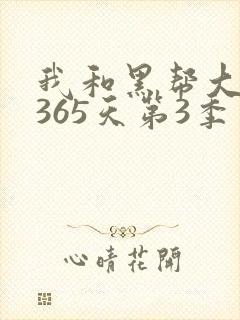 我和黑帮大
365天第3季
心晴花開